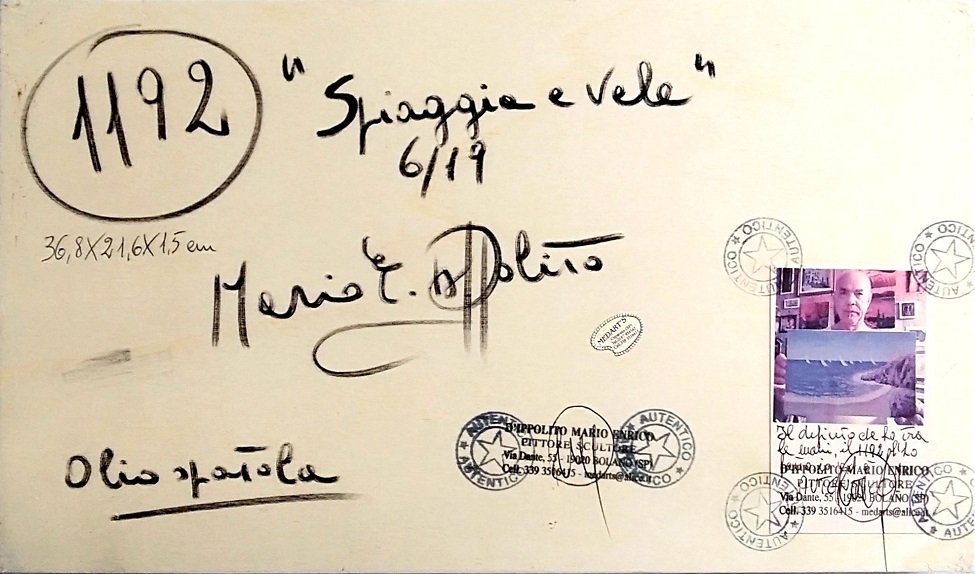 1192
"Spiaggia e vele"
6/19
36,8X21,6X1,5 cm
Mario E. D'Ippolito
MEDART'S
Olio spatola
AUTENTICO
AUTENTICO
D'IPPOLITO MARIO ENRICO
PITTORE SCULTORE
Via Dante, 55 - 19020 BOLANO (SP)
Cell. 339 3516415 - medarts@alice.it
AUTENTICO
AUTENTICO
Il dipinto che ho tra
le mani, il 1192 olio
D'IPPOLITO MARIO ENRICO
PITTORE SCULTORE
Via Dante, 55 - 19020 BOLANO (SP)
Cell. 339 3516415 - medarts@alice.it
AUTENTICO
AUTENTICO